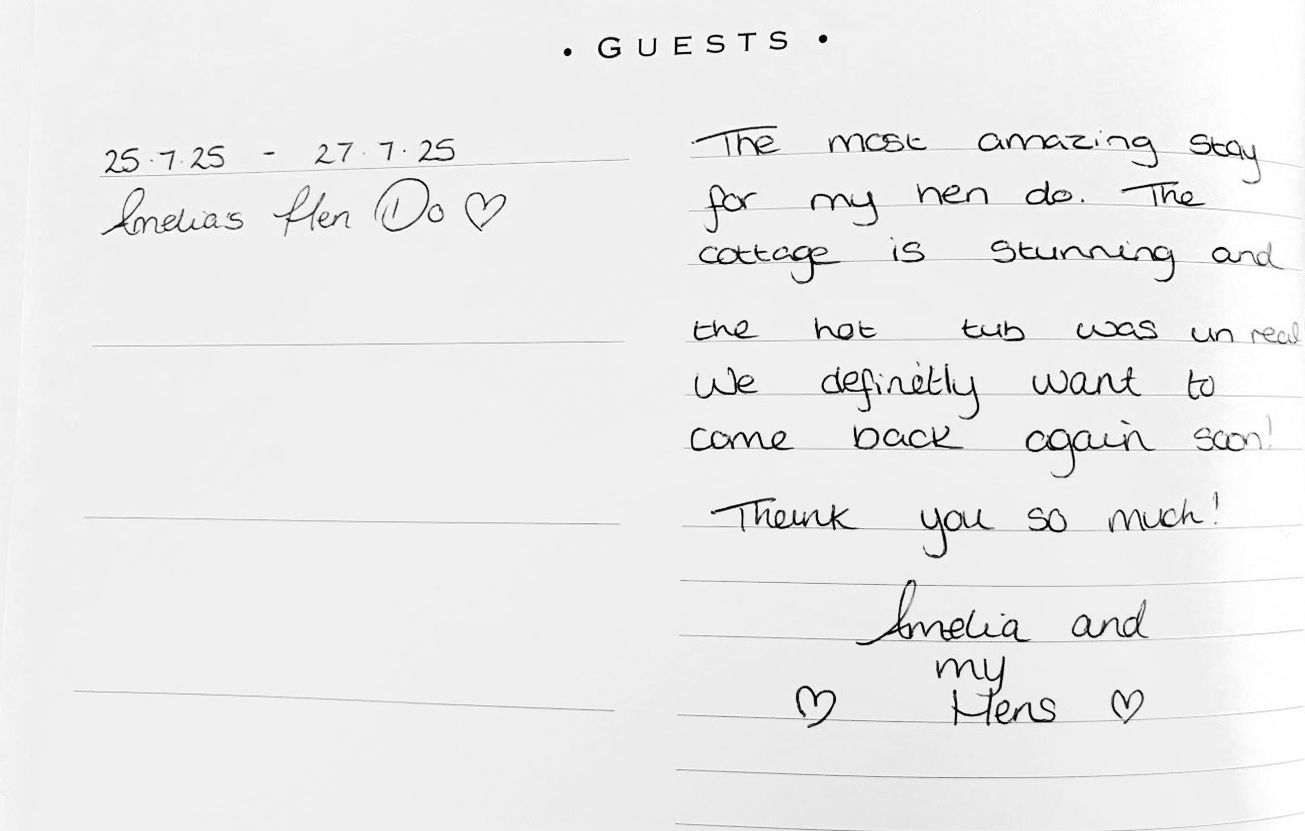 • GUESTS •
25.7.25 - 27.7.25
Amelias Hen Do ♡
The most amazing stay
for my hen do. The
cottage is stunning and
the hot tub was un real
We definetly want to
come back again soon!
Thank you so much!
Amelia and
my
♡ Hens ♡